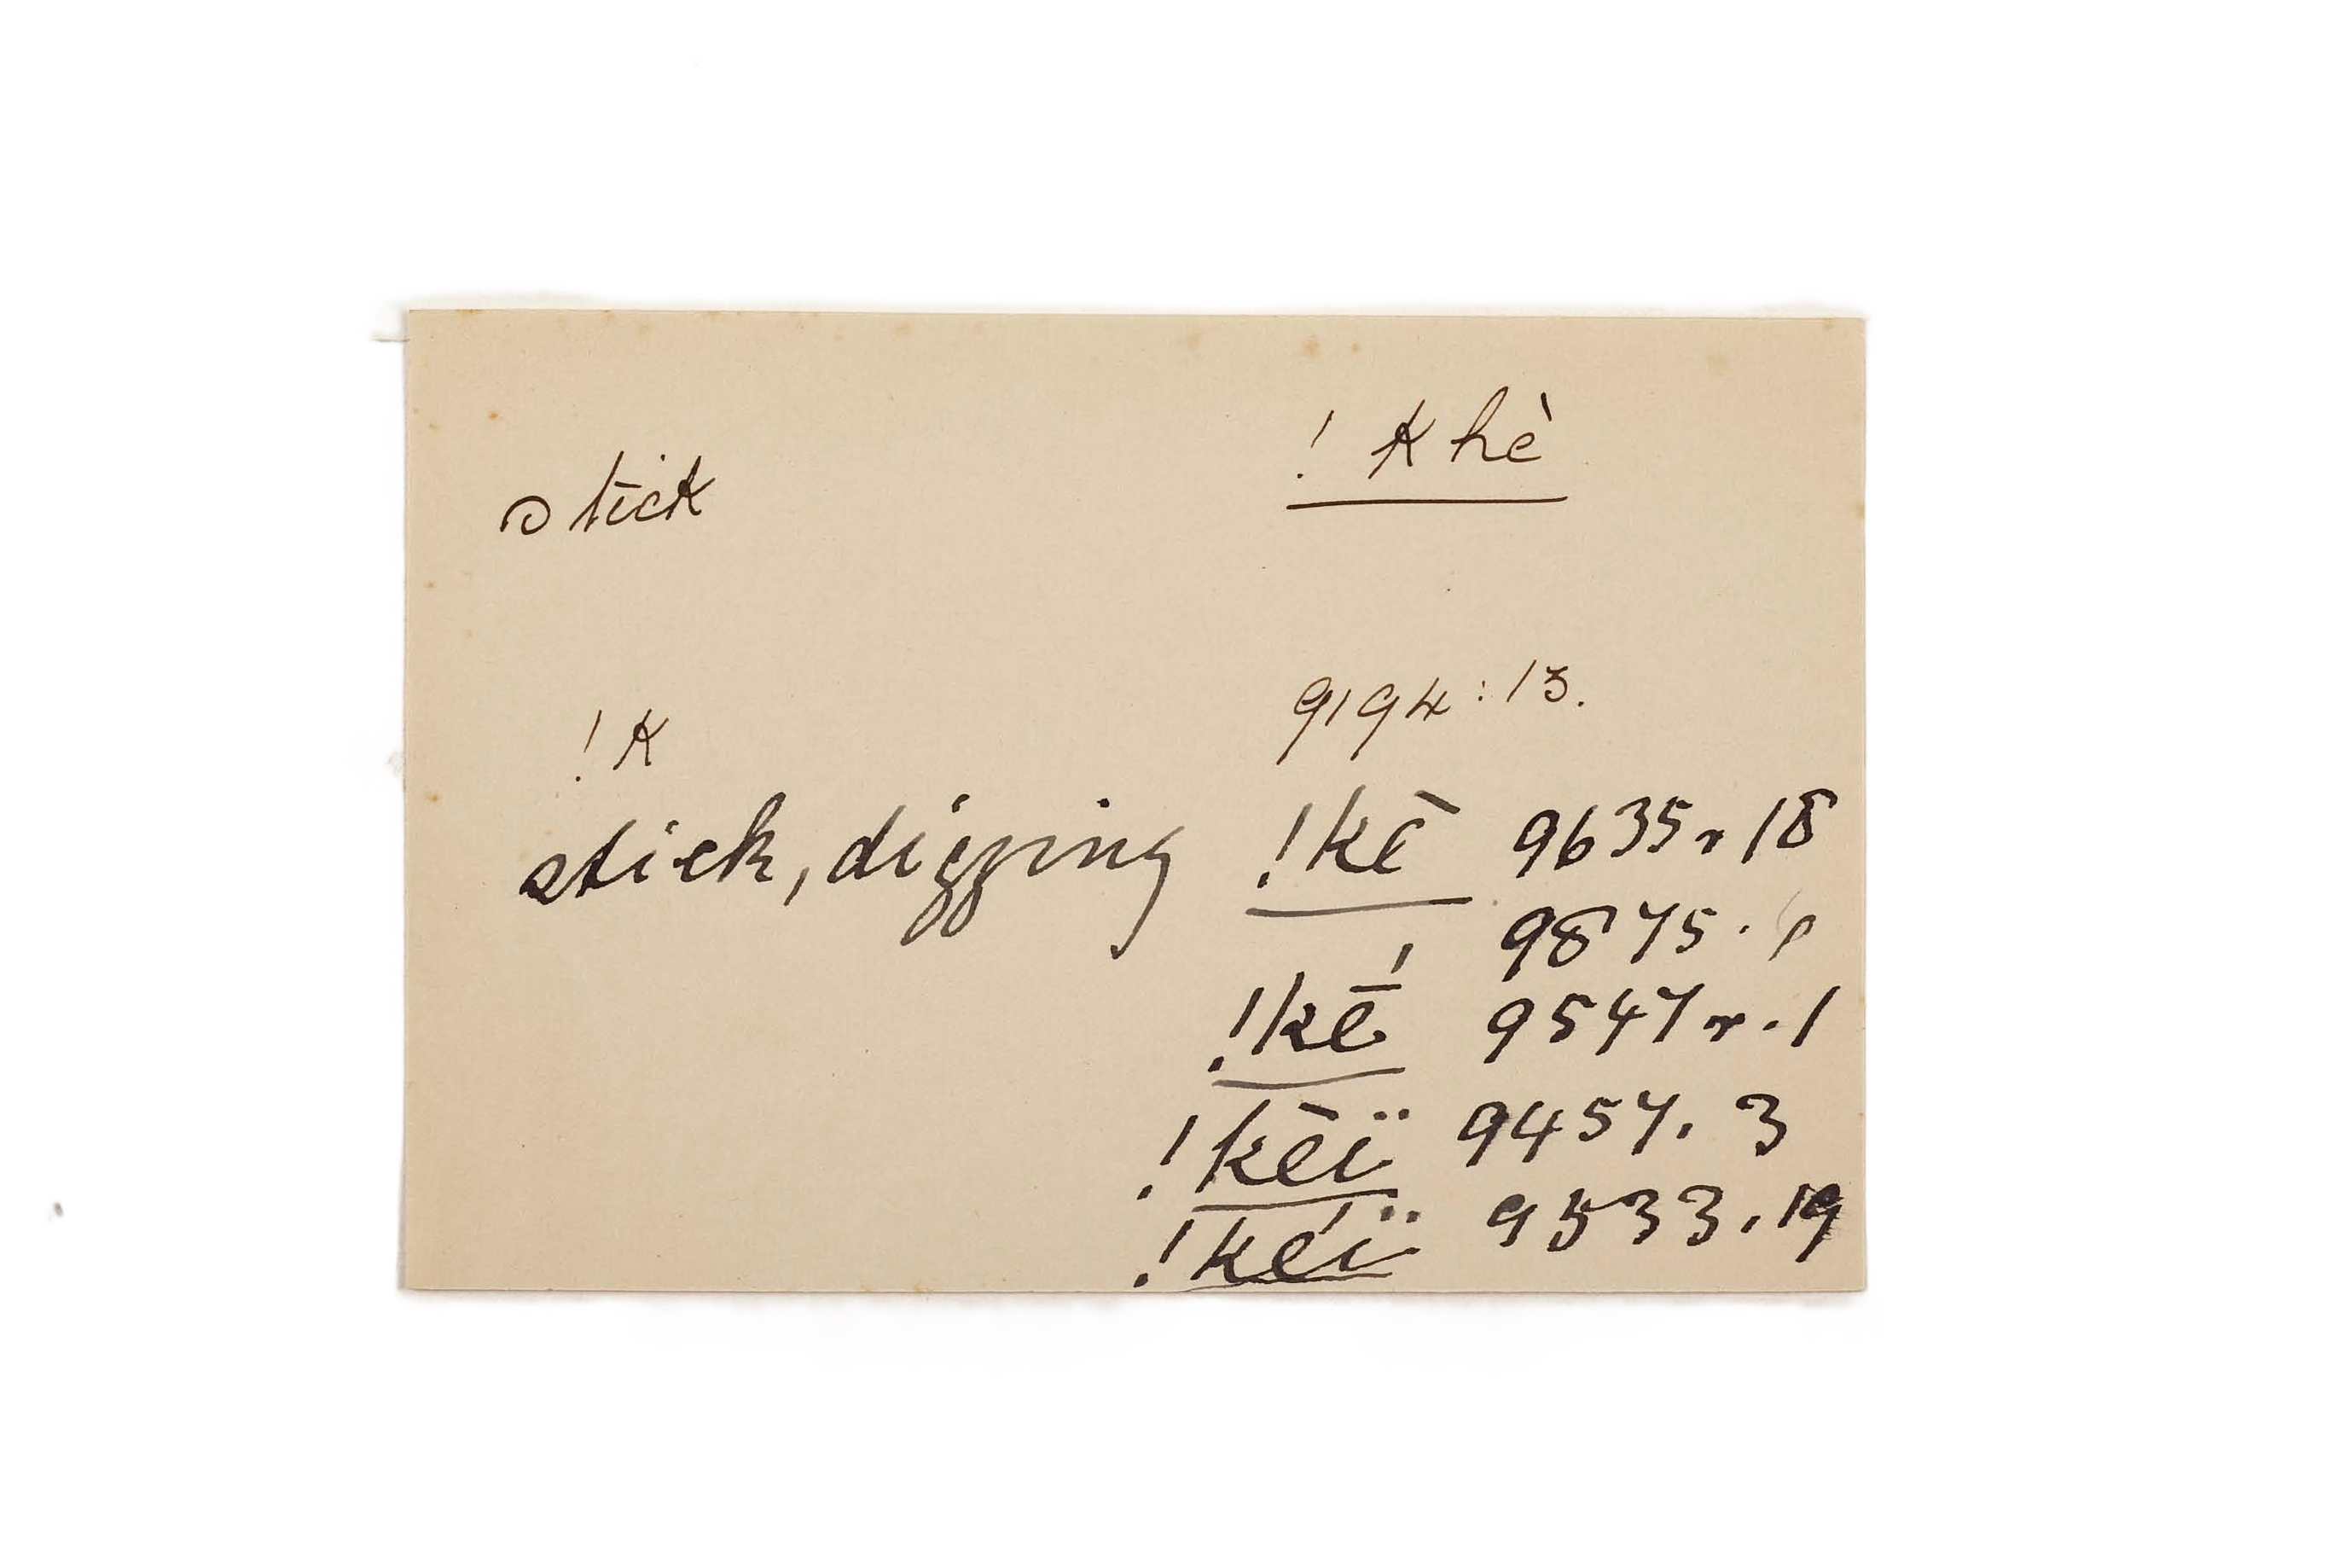 stick !Khè
!K 9194:13.
stick, digging !kē 9635r18
9875.
!kḗ 9547r.1
!kēï 9457.3
!kéï 9533.19